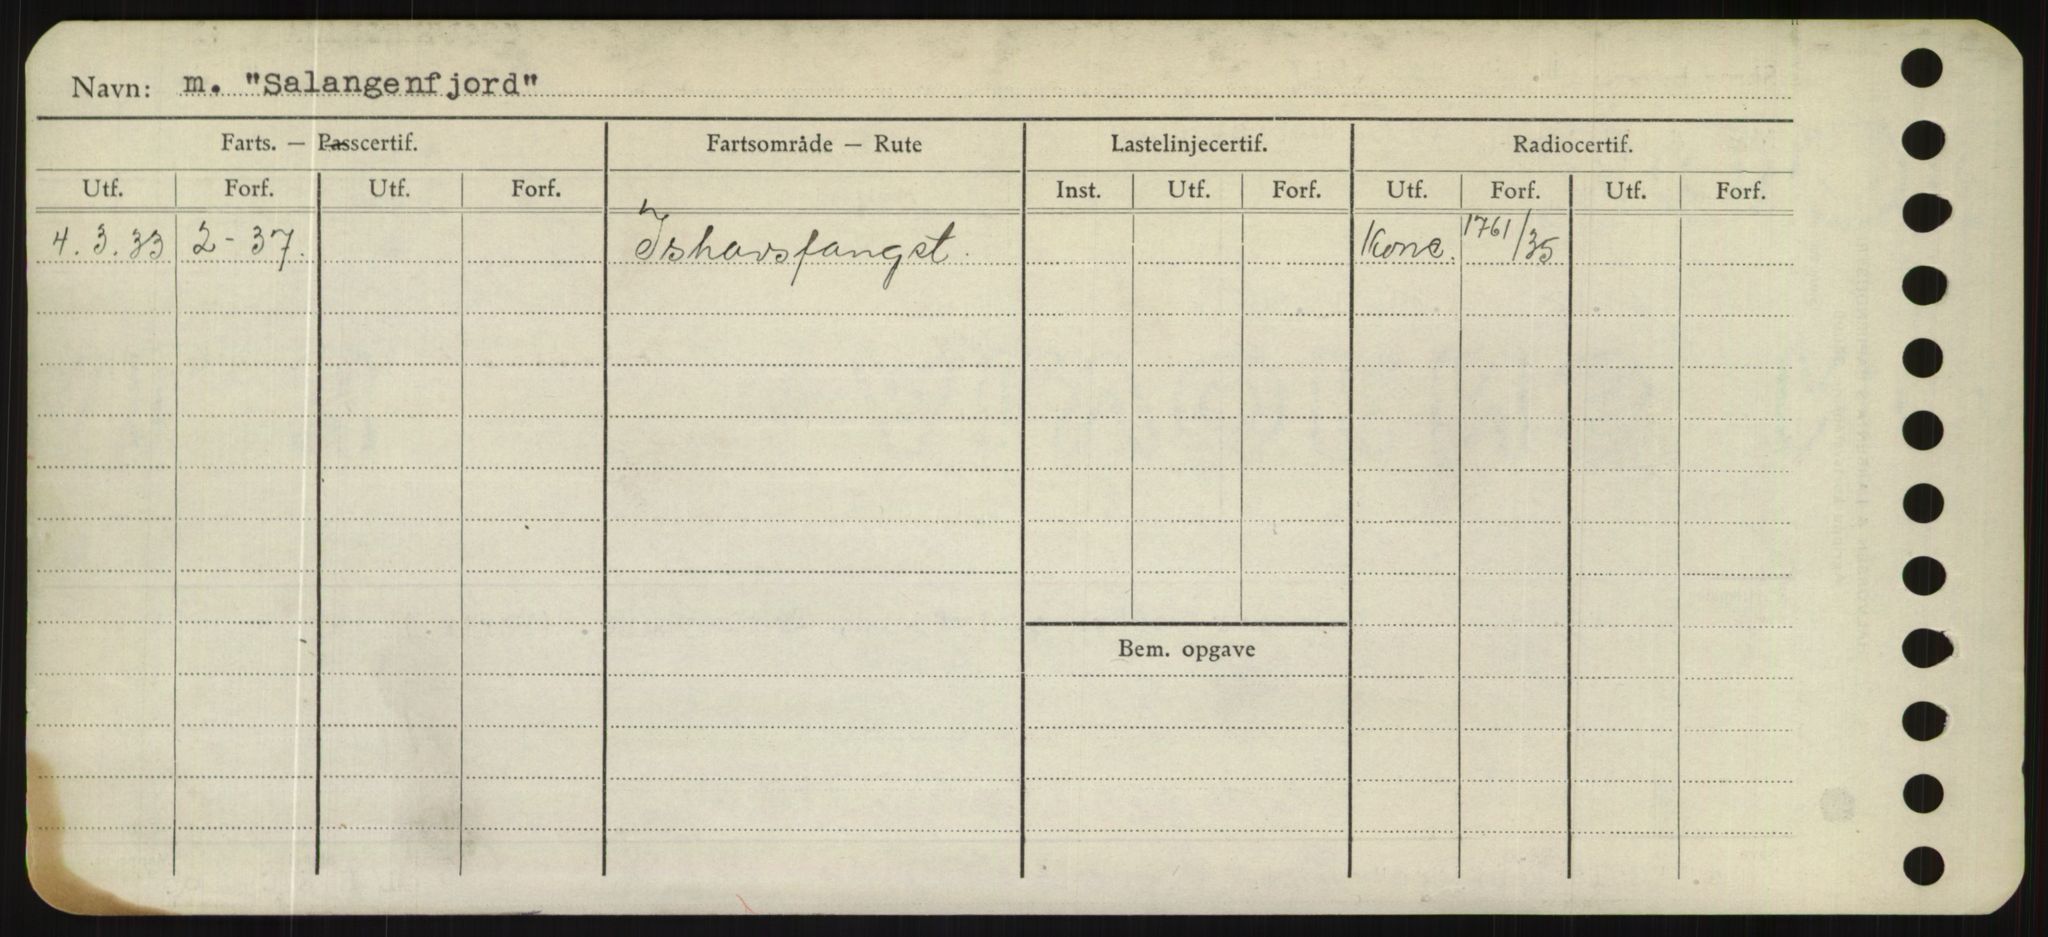 Navn: m. "Salangenfjord"
Farts. — Passcertif. Fartsområde — Rute Lastelinjecertif. Radiocertif.
Utf. Forf. Utf. Forf. Inst. Utf. Forf. Utf. Forf. Utf. Forf.
4. 3. 33 2 - 37. Ishavsfangst. Konc. 1761/35
Bem. opgave